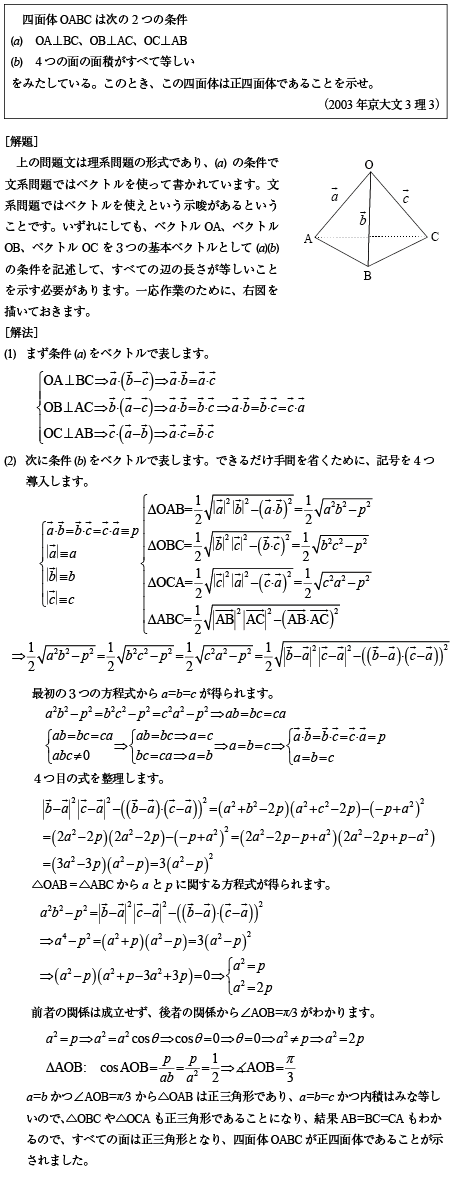 四面体 OABC は次の２つの条件
(a) OA⊥BC、OB⊥AC、OC⊥AB
(b) ４つの面の面積がすべて等しい
をみたしている。このとき、この四面体は正四面体であることを示せ。
（2003 年京大文３理３）
［解題］
上の問題文は理系問題の形式であり、(a) の条件で
文系問題ではベクトルを使って書かれています。文
系問題ではベクトルを使えという示唆があるという
ことです。いずれにしても、ベクトル OA、ベクトル
OB、ベクトル OC を３つの基本ベクトルとして (a)(b)
の条件を記述して、すべての辺の長さが等しいこと
を示す必要があります。一応作業のために、右図を
描いておきます。
O
a⃗ b⃗ c⃗
A C
B
［解法］
(1) まず条件 (a) をベクトルで表します。
OA⊥BC⇒a⃗·(b⃗−c⃗)⇒a⃗·b⃗=a⃗·c⃗
OB⊥AC⇒b⃗·(a⃗−c⃗)⇒a⃗·b⃗=b⃗·c⃗⇒a⃗·b⃗=b⃗·c⃗=c⃗·a⃗
OC⊥AB⇒c⃗·(a⃗−b⃗)⇒a⃗·c⃗=b⃗·c⃗
(2) 次に条件 (b) をベクトルで表します。できるだけ手間を省くために、記号を４つ
導入します。
a⃗·b⃗=b⃗·c⃗=c⃗·a⃗≡p
|a⃗|≡a
|b⃗|≡b
|c⃗|≡c
ΔOAB=1/2√(|a⃗|²|b⃗|²−(a⃗·b⃗)²)=1/2√(a²b²−p²)
ΔOBC=1/2√(|b⃗|²|c⃗|²−(b⃗·c⃗)²)=1/2√(b²c²−p²)
ΔOCA=1/2√(|c⃗|²|a⃗|²−(c⃗·a⃗)²)=1/2√(c²a²−p²)
ΔABC=1/2√(|AB⃗|²|AC⃗|²−(AB⃗·AC⃗)²)
⇒1/2√(a²b²−p²)=1/2√(b²c²−p²)=1/2√(c²a²−p²)=1/2√(|b⃗−a⃗|²|c⃗−a⃗|²−((b⃗−a⃗)·(c⃗−a⃗))²)
最初の３つの方程式から a=b=c が得られます。
a²b²−p²=b²c²−p²=c²a²−p²⇒ab=bc=ca
{ab=bc=ca, abc≠0 ⇒{ab=bc⇒a=c, bc=ca⇒a=b ⇒a=b=c⇒{a⃗·b⃗=b⃗·c⃗=c⃗·a⃗=p, a=b=c
４つ目の式を整理します。
|b⃗−a⃗|²|c⃗−a⃗|²−((b⃗−a⃗)·(c⃗−a⃗))²=(a²+b²−2p)(a²+c²−2p)−(−p+a²)²
=(2a²−2p)(2a²−2p)−(−p+a²)²=(2a²−2p−p+a²)(2a²−2p+p−a²)
=(3a²−3p)(a²−p)=3(a²−p)²
△OAB＝△ABC から a と p に関する方程式が得られます。
a²b²−p²=|b⃗−a⃗|²|c⃗−a⃗|²−((b⃗−a⃗)·(c⃗−a⃗))²
⇒a⁴−p²=(a²+p)(a²−p)=3(a²−p)²
⇒(a²−p)(a²+p−3a²+3p)=0⇒{a²=p, a²=2p
前者の関係は成立せず、後者の関係から∠AOB=π/3 がわかります。
a²=p⇒a²=a²cosθ⇒cosθ=0⇒θ=0⇒a²≠p⇒a²=2p
ΔAOB: cosAOB=p/ab=p/a²=1/2⇒∡AOB=π/3
a=b かつ∠AOB=π/3 から△OAB は正三角形であり、a=b=c かつ内積はみな等し
いので、△OBC や△OCA も正三角形であることになり、結果 AB=BC=CA もわか
るので、すべての面は正三角形となり、四面体 OABC が正四面体であることが示
されました。